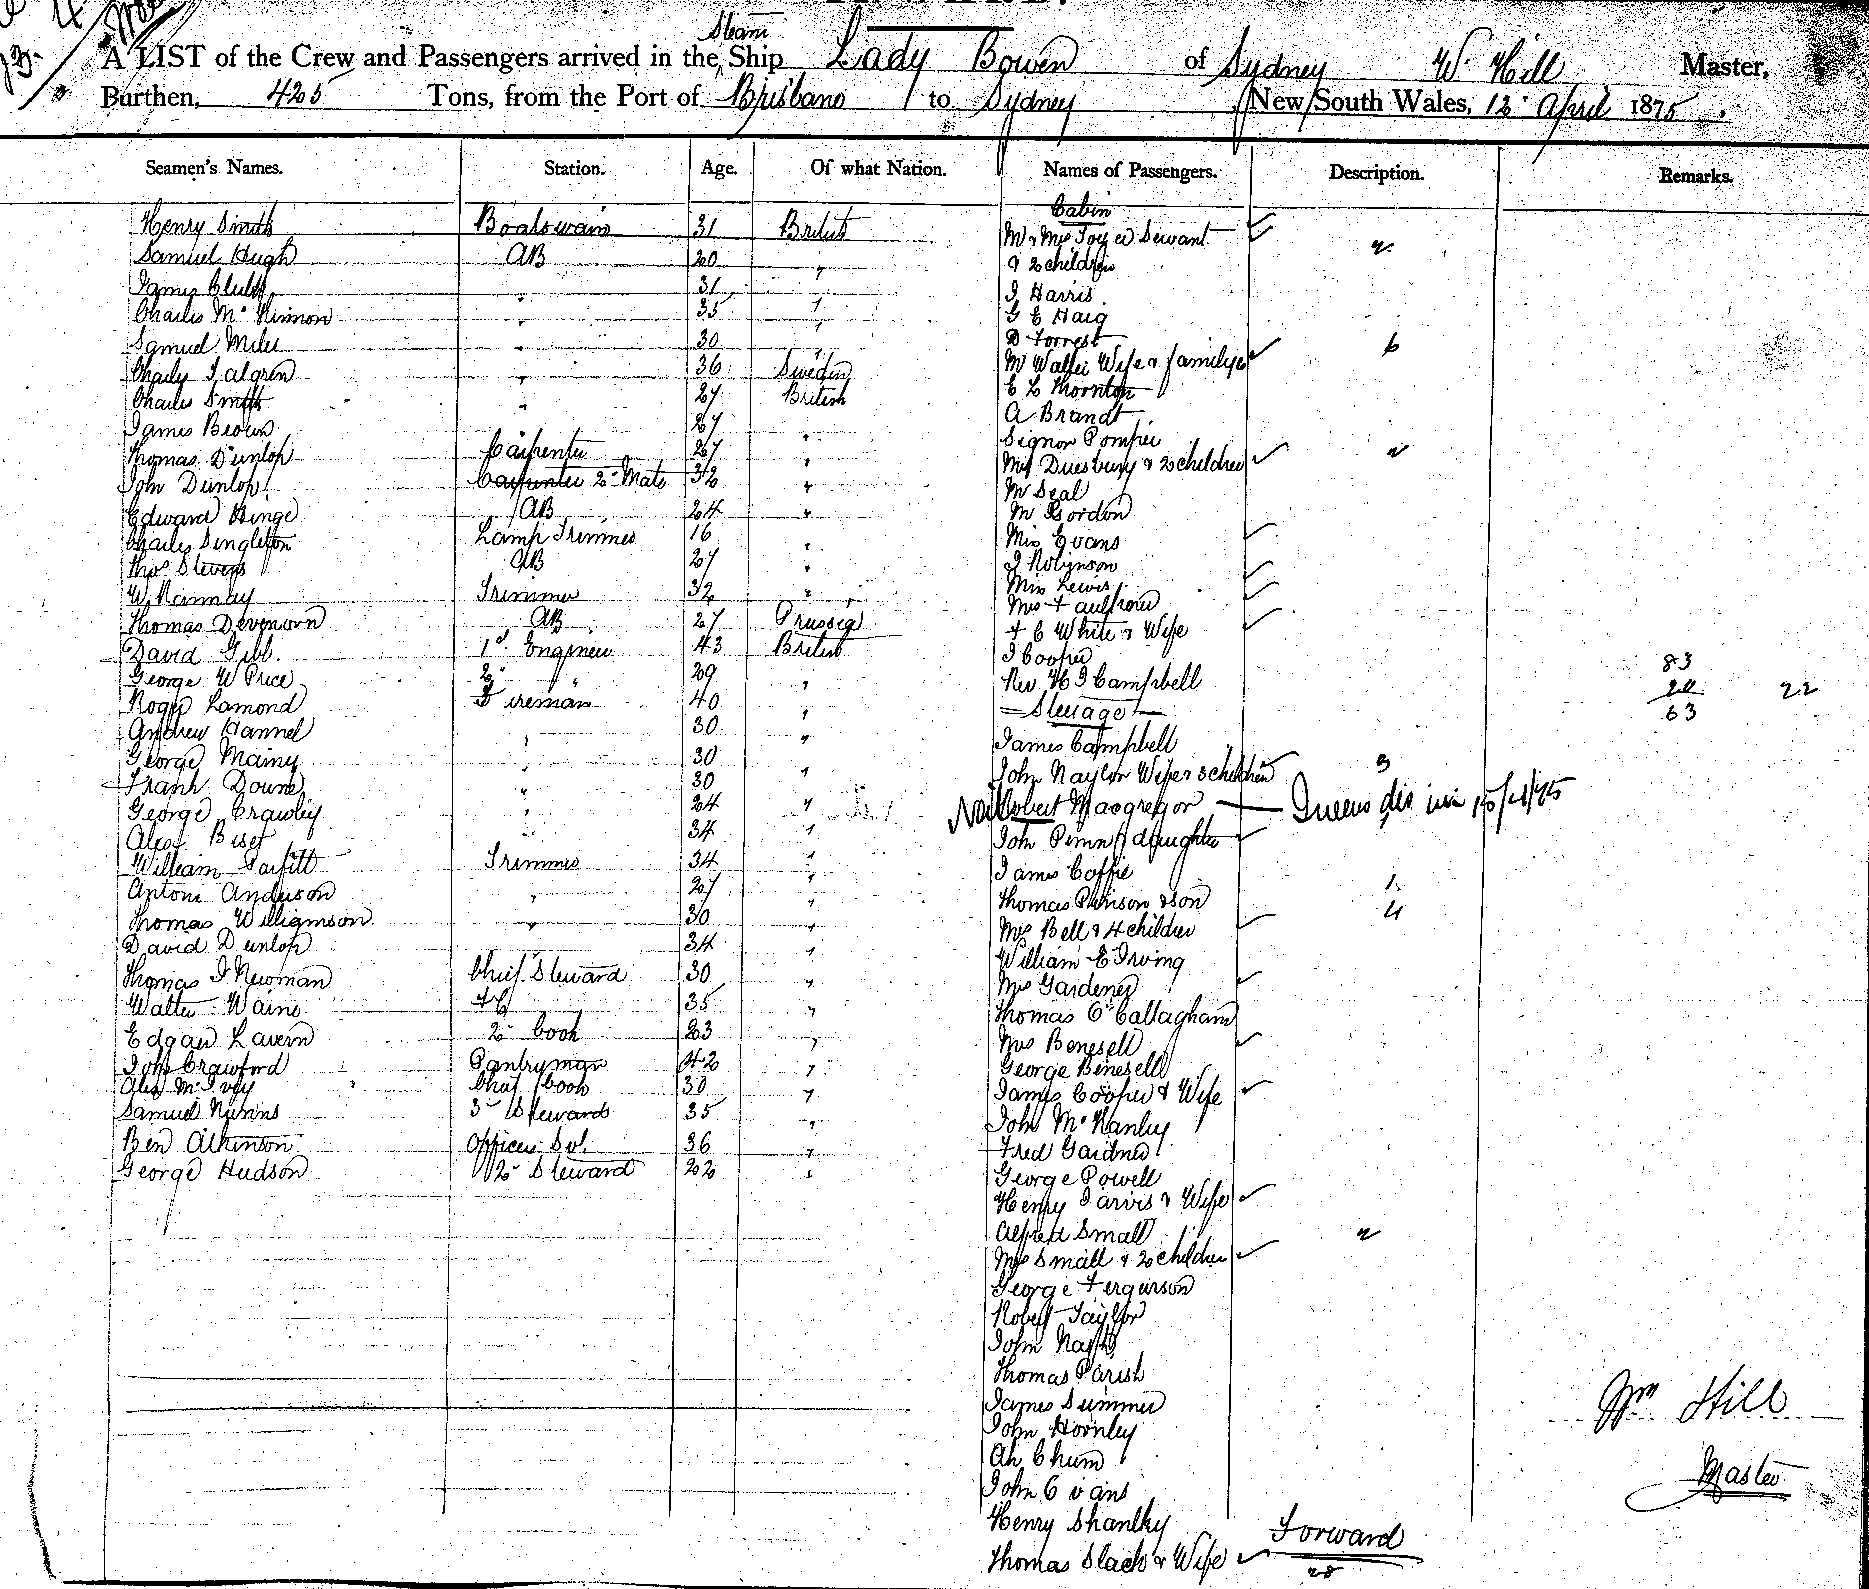 Steam
A LIST of the Crew and Passengers arrived in the Ship Lady Bowen of Sydney W Hill Master,
Burthen, 425 Tons, from the Port of Brisbane to Sydney New South Wales, 12 April 1875
Seamen's Names. Station. Age. Of what Nation. Names of Passengers. Description. Remarks.
Cabin
Henry Smith Boatswain 31 British
Samuel Hugh AB 20 "
James 31
Charles McKinnon " 35 "
Samuel Miles " 30 "
Charly Falgren " 36 Sweden
Charles Smith " 27 British
James Brown 27 "
Thomas Dunlop Carpenter 27 "
John Dunlop Carpenter 2nd Mate 32 "
Edward Hinge AB 24 "
Charles Singleton Lamp Trimmer 16 "
Thos Stevens AB 27 "
W Hannay Trimmer 32 "
Thomas AB 27 Prussia
David Gibb. 1st Engineer 43 British
George W Price 2 " 29 "
Roger Lamond Fireman 40 "
Andrew Hannel " 30 "
George Mainy " 30 "
Frank Doune " 30
George Crawley " 24 "
Alex Biset " 34 "
William Parfitt Trimmer 34 "
Antoni Anderson " 27 "
Thomas Williamson " 30 "
David Dunlop 34 "
Thomas J Newman Chief Steward 30 "
Walter Waine 35 "
Edgar Lavern 2nd Cook 23 "
John Crawford Pantryman 42 "
Alex McIvoy Chief Cook 30 "
Samuel 3rd Steward 35 "
Ben Atkinson Officers Svt. 36 "
George Hudson 2nd Steward 22 "
Mr & Mrs Servant
& 2 children 2
J Harris
G E Haig
D Forrest
Mr Walter Wife & family 6 6
E L Thornton
A Brandt
Signor Pompei
Mrs Duesbury & 2 children 2
Mr Seal
Mr Gordon
Miss Evans
J Robinson
Miss Lewis
Mrs
F C White & Wife
J Cooper
Rev H J Campbell
Steerage
James Campbell
John Naylor Wife & 3 children 3
Robert Macgregor
John Pimm & daughter
James Coffie
Thomas & Son 1
Mrs Bell & 4 children 4
William E Irving
Mrs Gardener
Thomas O'Callagham
Mrs Benesell
George Benesell
James Cooper & Wife
John McKanley
Fred Gardner
George Powell
Henry Jarvis & Wife
Alfred Small
Mrs Small & 2 children 2
George Fergurson
Robert Taylor
John
Thomas Parish
James Summer
John Hornley
Ah Chum
John Evans
Henry Shanley
Thomas Slack & Wife
Forward
28
83
20 22
63
Wm Hill
Master